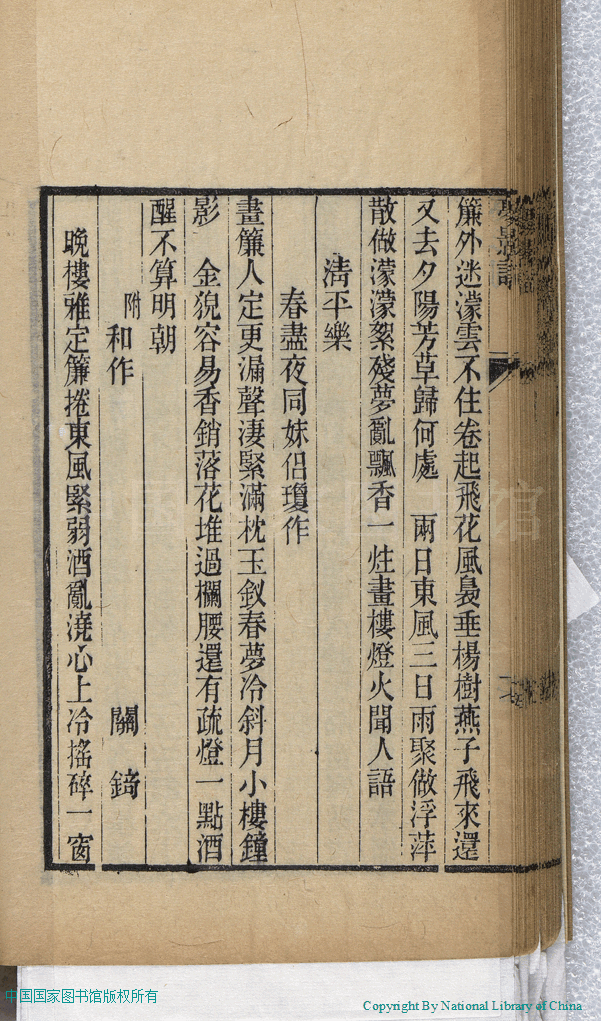 簾外迷濛雲不住卷起飛花風裊垂楊樹燕子飛來還
又去夕陽芳草歸何處　兩日東風三日雨聚做浮萍
散做濛濛絮殘夢亂飄香一炷畫樓燈火聞人語
清平樂
春盡夜同妹侶瓊作
畫簾人定更漏聲淒緊滿枕玉釵春夢冷斜月小樓鐘
影　金猊容易香銷落花堆過欄腰還有疏燈一點酒
醒不算明朝
附　和作　關錡
晚樓雅定簾捲東風緊弱酒亂澆心上冷搖碎一窗
中国国家图书馆版权所有
Copyright By National Library of China